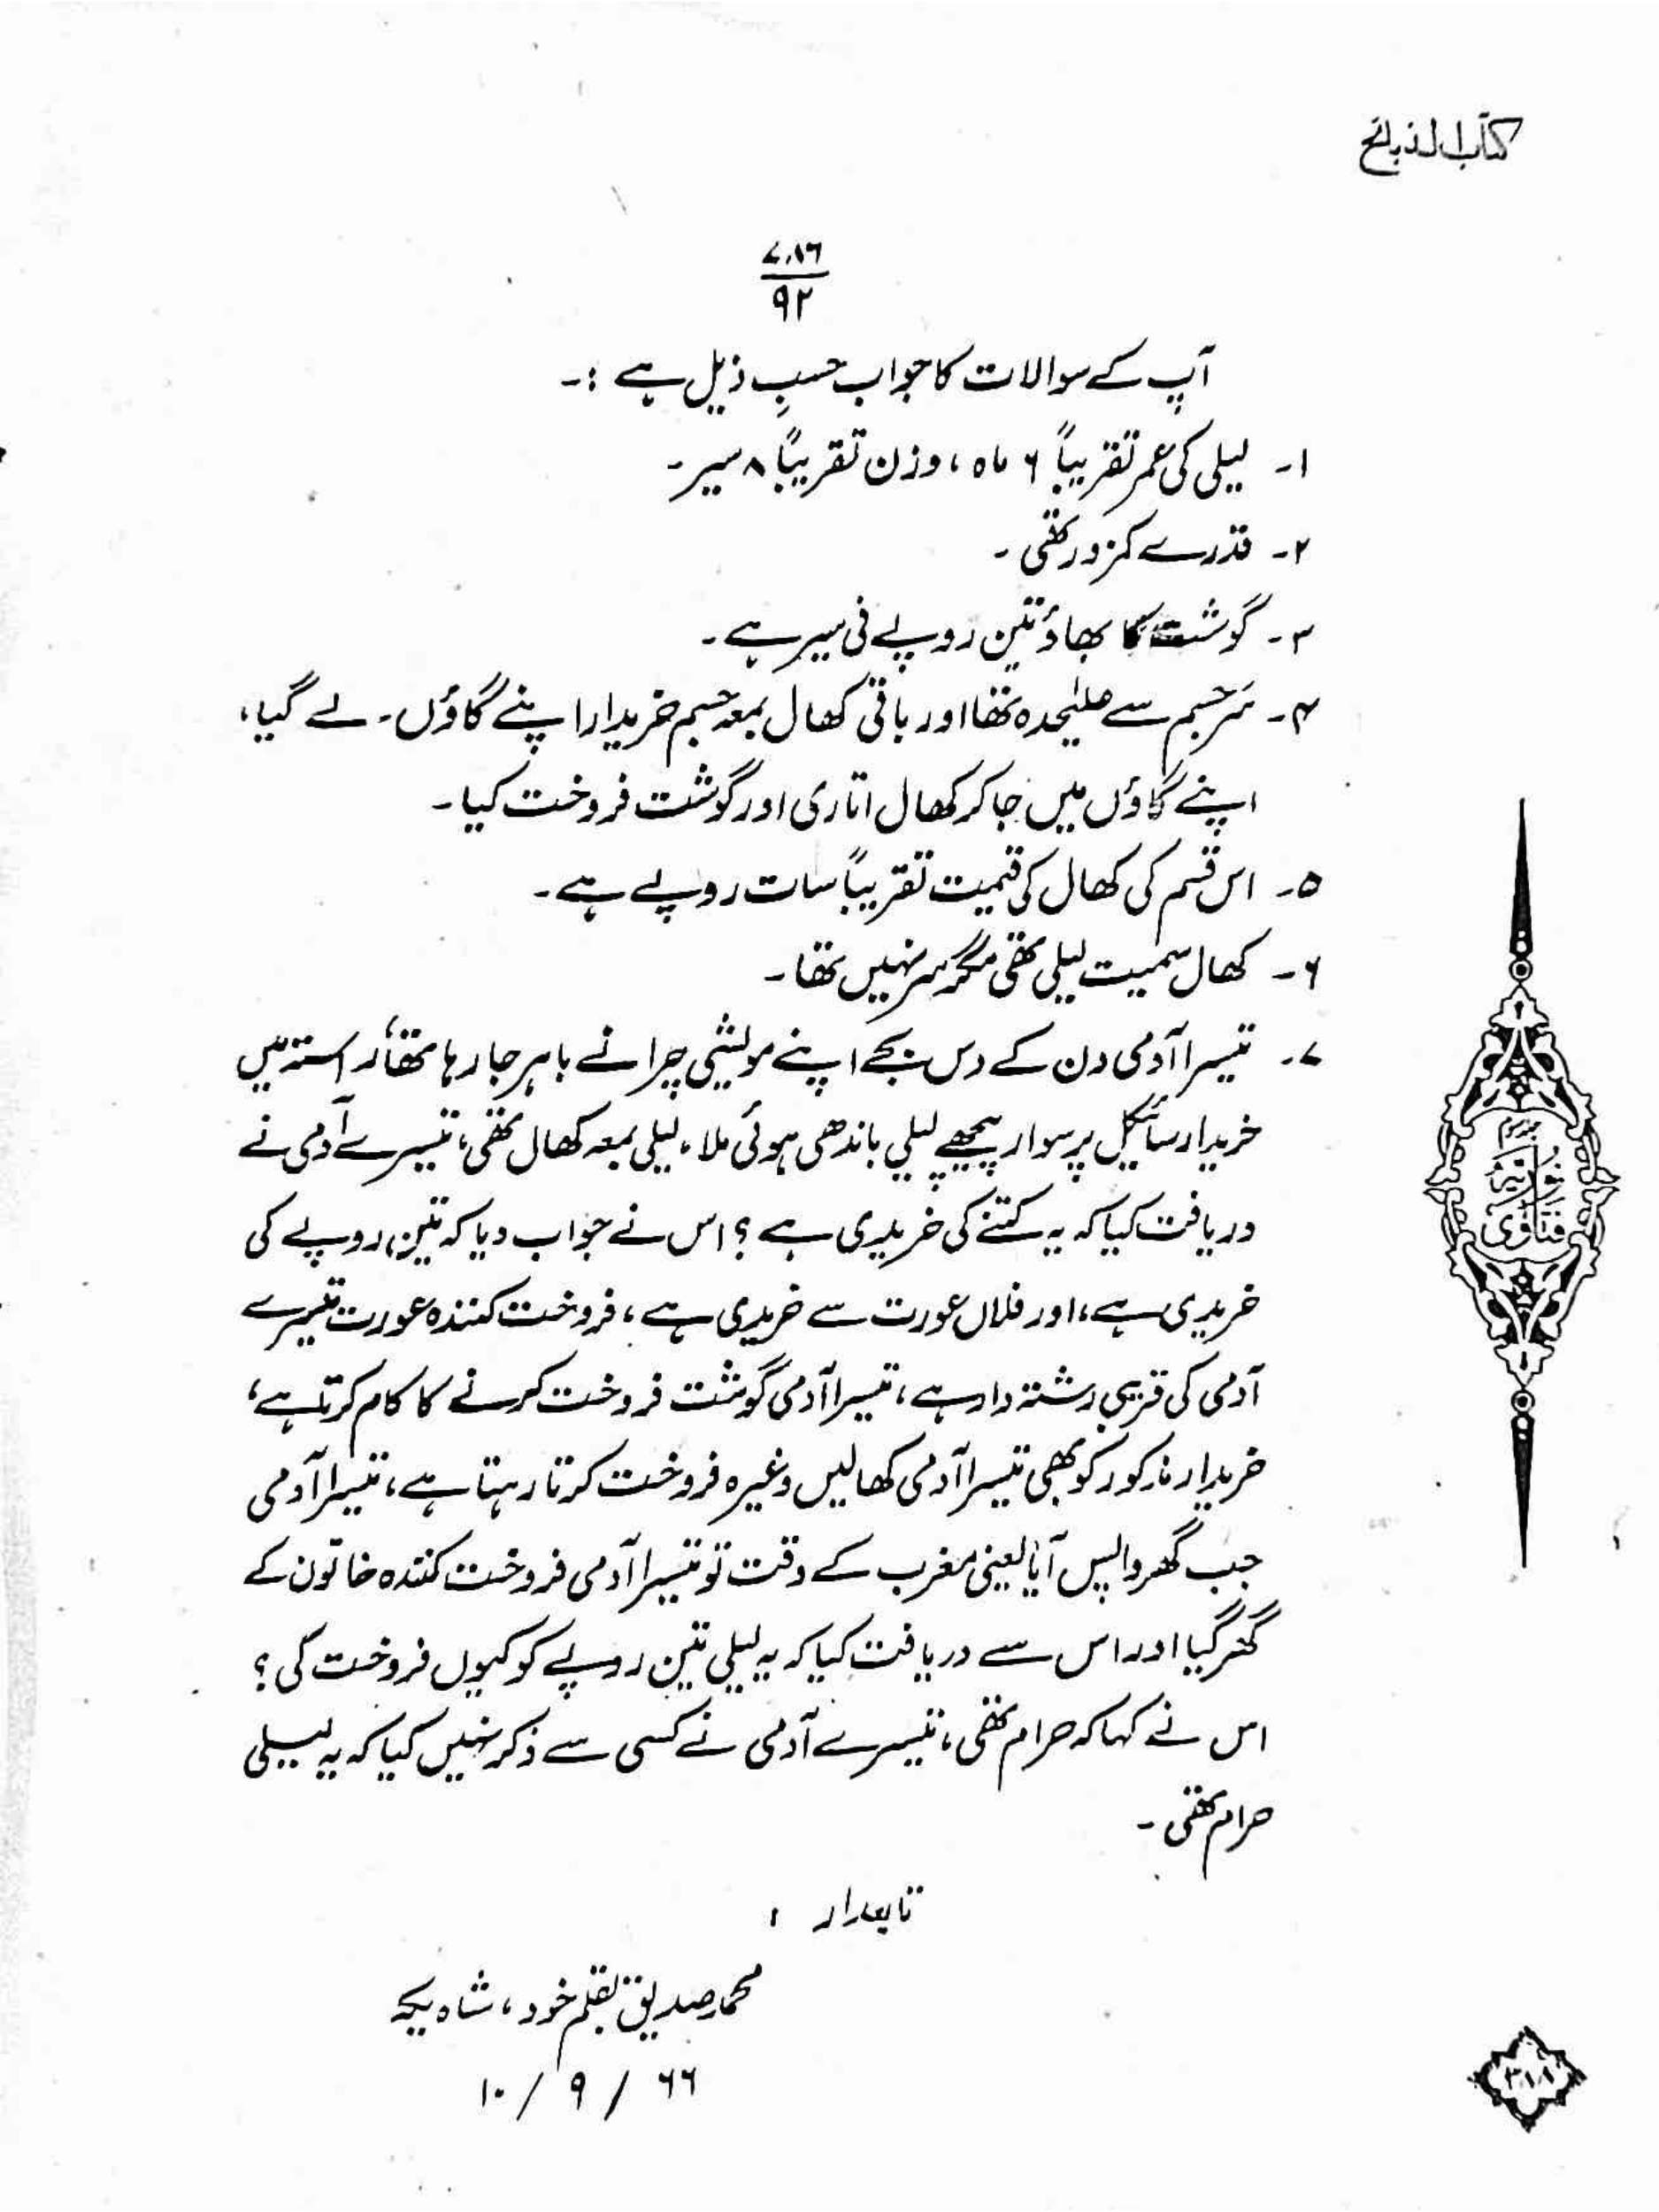 کتاب الذبائح
۷۸۶
۹۲
آپ کے سوالات کا جواب حسبِ ذیل ہے :۔
۱۔ لیلی کی عمر تقریباً ۶ ماہ، وزن تقریباً ۸ سیر۔
۲۔ قدرے کمزور تھی۔
۳۔ گوشت کا بھاؤ تین روپے فی سیر ہے۔
۴۔ سَر جسم سے علیٰحدہ تھا اور باقی کھال بمعہ جسم خریدار اپنے گاؤں۔ لے گیا،
اپنے گاؤں میں جا کر کھال اتاری اور گوشت فروخت کیا۔
۵۔ اس قسم کی کھال کی قیمت تقریباً سات روپے ہے۔
۶۔ کھال سمیت لیلی تھی مگر سر نہیں تھا۔
۷۔ تیسرا آدمی دن کے دس بجے اپنے مویشی چرانے باہر جا رہا تھا، راستہ میں
خریدار سائیکل پر سوار پیچھے لیلی باندھی ہوئی ملا، لیلی بمعہ کھال تھی، تیسرے آدمی نے
دریافت کیا کہ یہ کتنے کی خریدی ہے؟ اس نے جواب دیا کہ تین روپے کی
خریدی ہے، اور فلاں عورت سے خریدی ہے، فروخت کنندہ عورت تیسرے
آدمی کی قریبی رشتہ دار ہے، تیسرا آدمی گوشت فروخت کرنے کا کام کرتا ہے،
خریدار مذکور کو بھی تیسرا آدمی کھالیں وغیرہ فروخت کرتا رہتا ہے، تیسرا آدمی
جب گھر واپس آیا یعنی مغرب کے وقت تو تیسرا آدمی فروخت کنندہ خاتون کے
گھر گیا اور اس سے دریافت کیا کہ یہ لیلی تین روپے کو کیوں فروخت کی؟
اس نے کہا کہ حرام تھی، تیسرے آدمی نے کسی سے ذکر نہیں کیا کہ یہ لیلی
حرام تھی۔
تابعدار
محمد صدیق بقلم خود، شاہ یکہ
۱۰ / ۹ / ۶۶
فتاوٰی نوریہ
۳۸۸